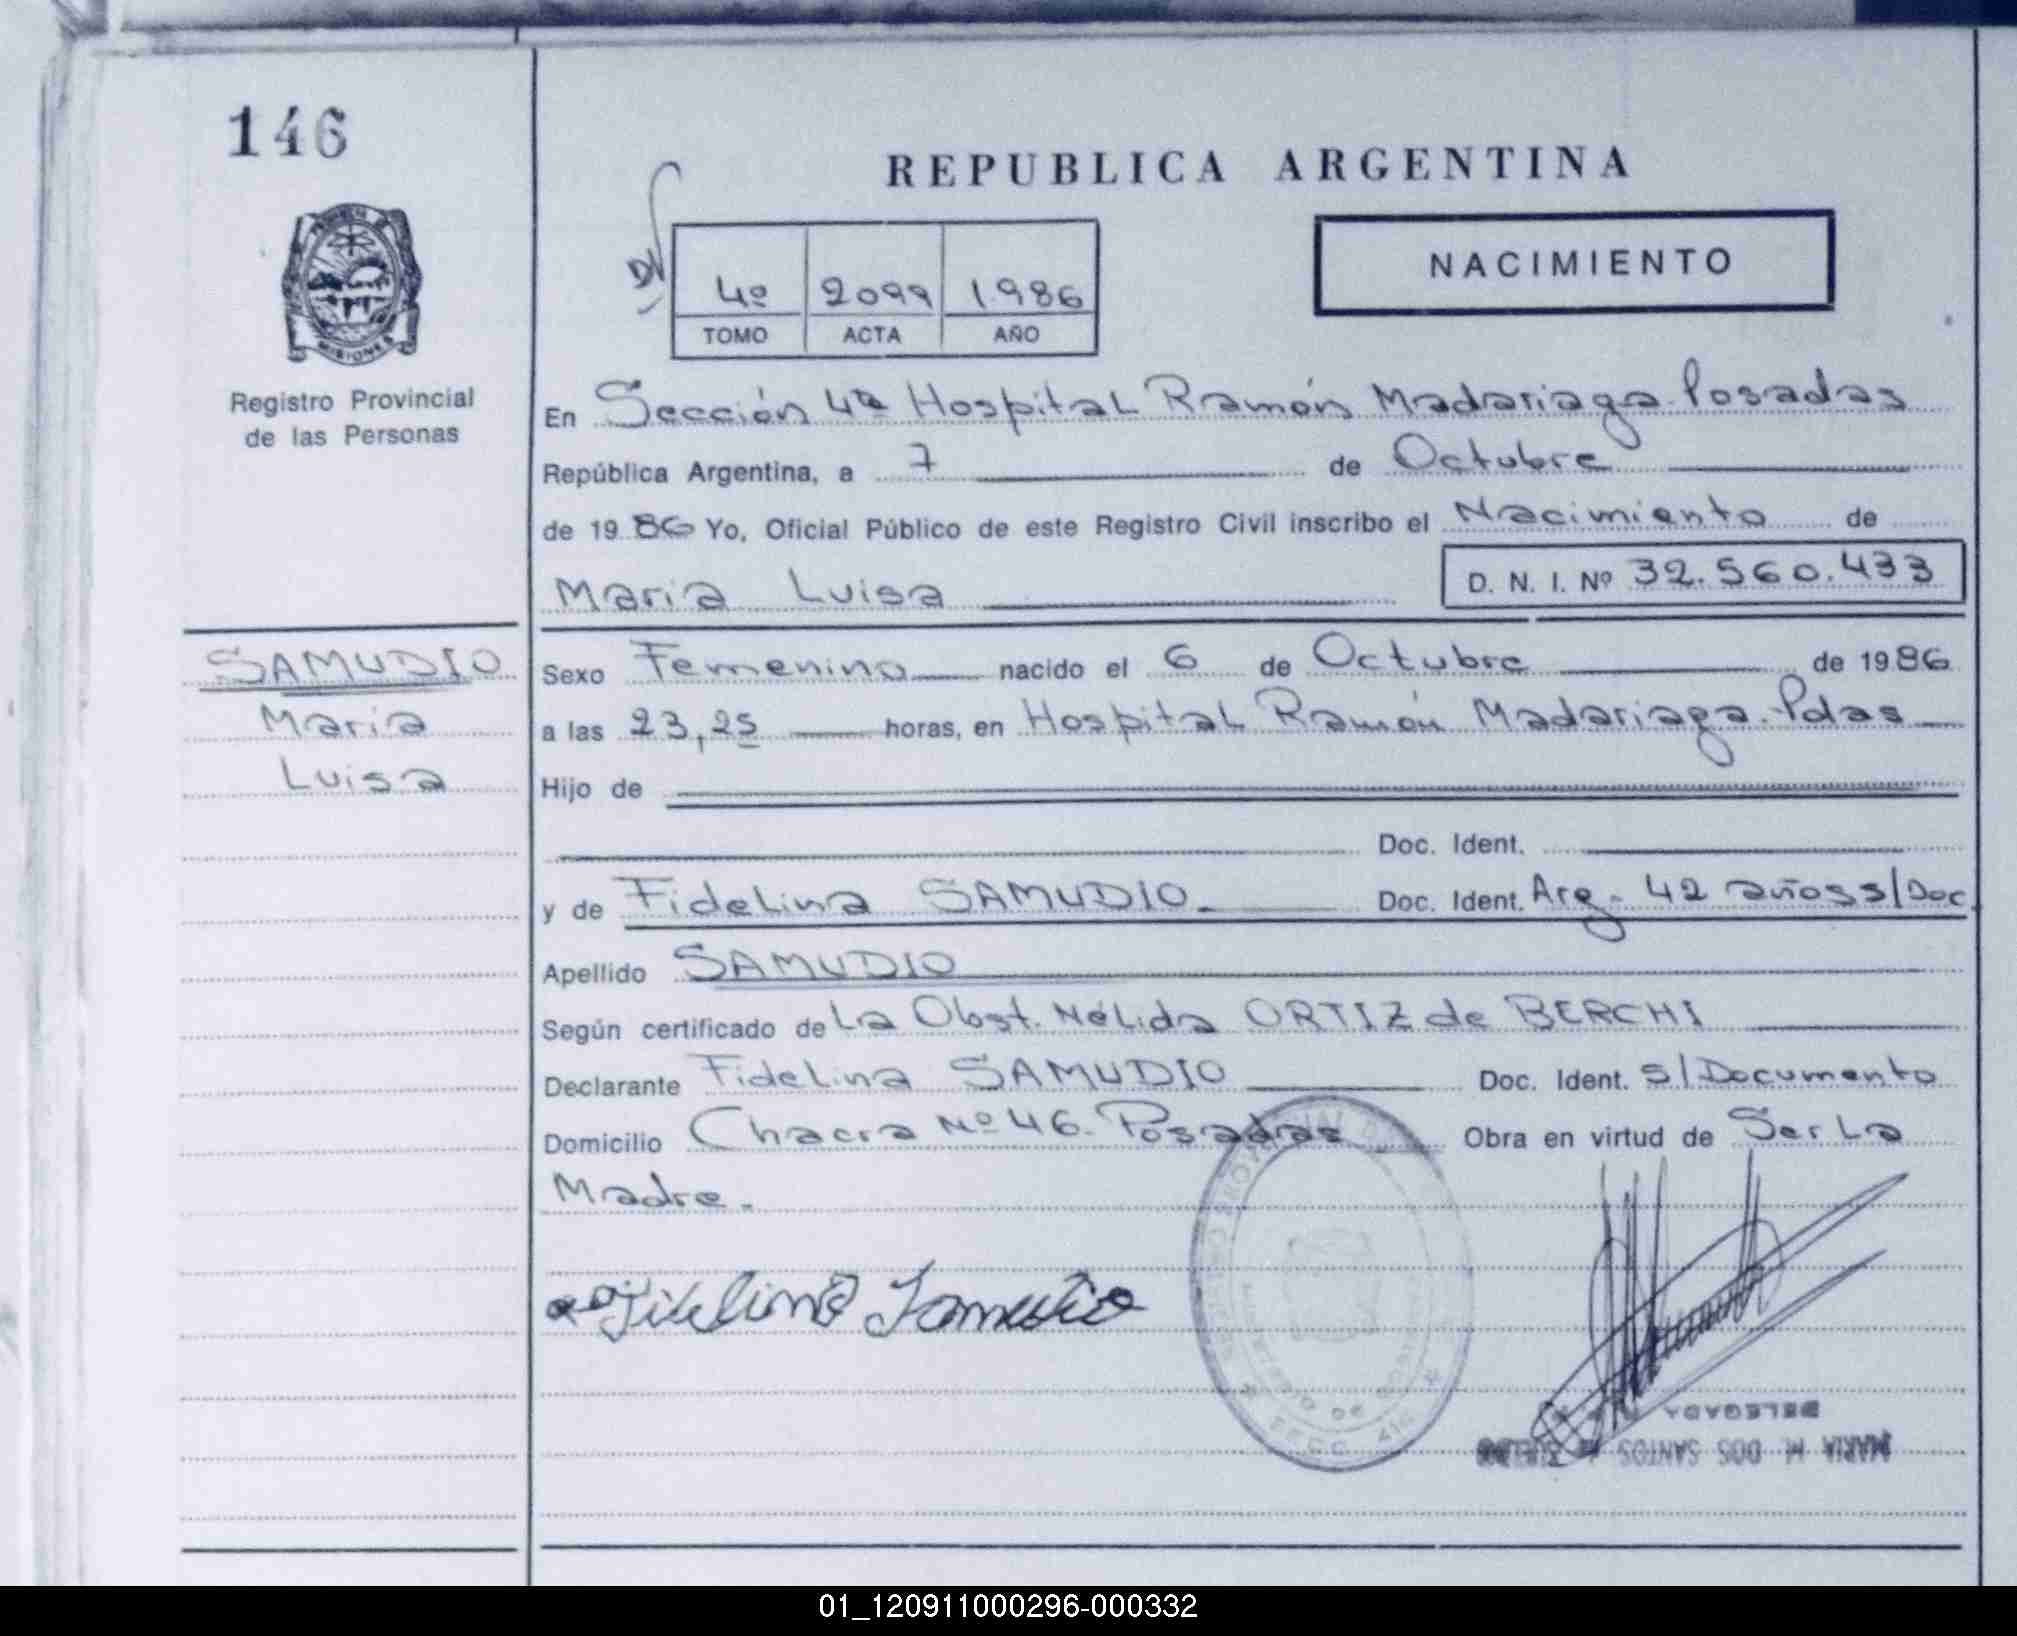 146
REPUBLICA ARGENTINA
NACIMIENTO
4º 2099 1.986
TOMO ACTA AÑO
MISIONES
Registro Provincial
de las Personas
En Sección 4ta Hospital Ramón Madariaga-Posadas
República Argentina, a 7 de Octubre
de 1986 Yo, Oficial Público de este Registro Civil inscribo el Nacimiento de
Maria Luisa D. N. I. Nº 32.560.433
SAMUDIO
Maria
Luisa
Sexo Femenino nacido el 6 de Octubre de 1986
a las 23,25 horas, en Hospital Ramón Madariaga-Pdas
Hijo de
Doc. Ident.
y de Fidelina SAMUDIO Doc. Ident. Arg- 42 años s/Doc.
Apellido SAMUDIO
Según certificado de La Obst. Nélida ORTIZ de BERCHI
Declarante Fidelina SAMUDIO Doc. Ident. s/Documento
Domicilio Chacra Nº 46-Posadas Obra en virtud de Ser La
Madre.
Fidelina Samudio
MARIA M. DOS SANTOS
DELEGADA
01_120911000296-000332